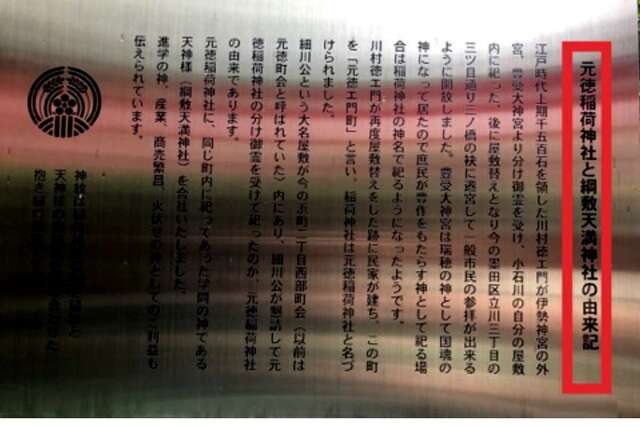 元徳稲荷神社と綱敷天満神社の由来記
江戸時代上期千五百石を領した川村徳エ門が伊勢神宮の外
宮、豊受大神宮より分け御霊を受け、小石川の自分の屋敷
内に祀った。後に屋敷替えとなり今の墨田区立川三丁目の
三ツ目通り三ノ橋の袂に遷宮して一般市民の参拝が出来る
ように開放しました。豊受大神宮は瑞穂の神として国魂の
神になって居たので庶民が豊作をもたらす神として祀る場
合は稲荷神社の神名で祀るようになったようです。
川村徳エ門が再度屋敷替えをした跡に民家が建ち、この町
を「元徳エ門町」と言い、稲荷神社は元徳稲荷神社と名づ
けられました。
細川公という大名屋敷が今の浜町二丁目西部町会（以前は
元徳町会と呼ばれていた）内にあり、細川公が懇請して元
徳稲荷神社の分け御霊を受けて祀ったのが、元徳稲荷神社
の由来であります。
元徳稲荷神社に、同じ町内に祀ってあった学問の神である
天神様（綱敷天満神社）を合社いたしました。
進学の神、産業、商売繁昌、火伏せの神としてのご利益も
伝えられています。
神紋は稲荷
天神様の
抱き稲